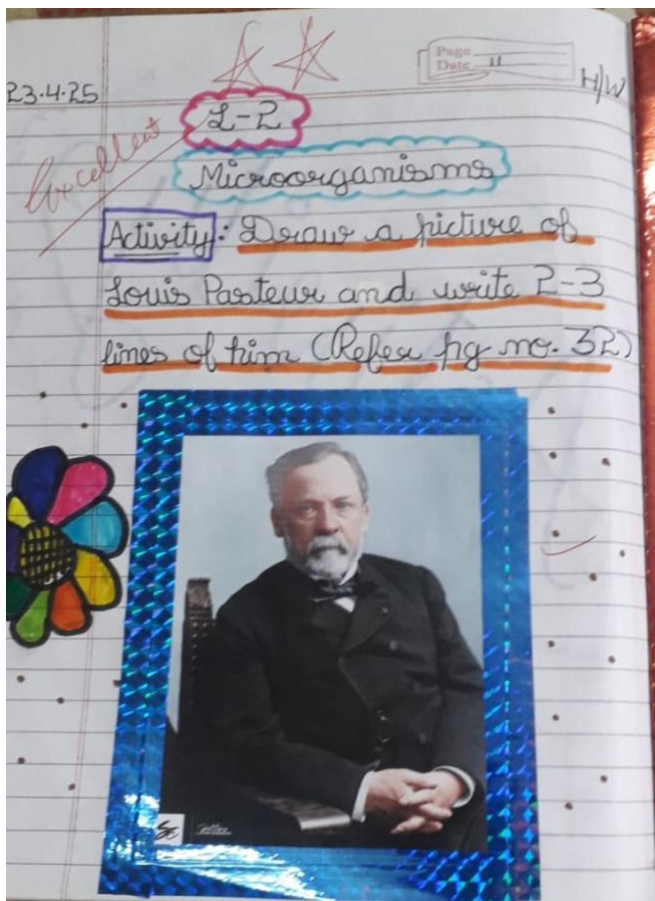 Page
Date 11
23.4.25
H/W
Excellent
L-2
Microorganisms
Activity: Draw a picture of
Louis Pasteur and write 2-3
lines of him (Refer pg no. 32)